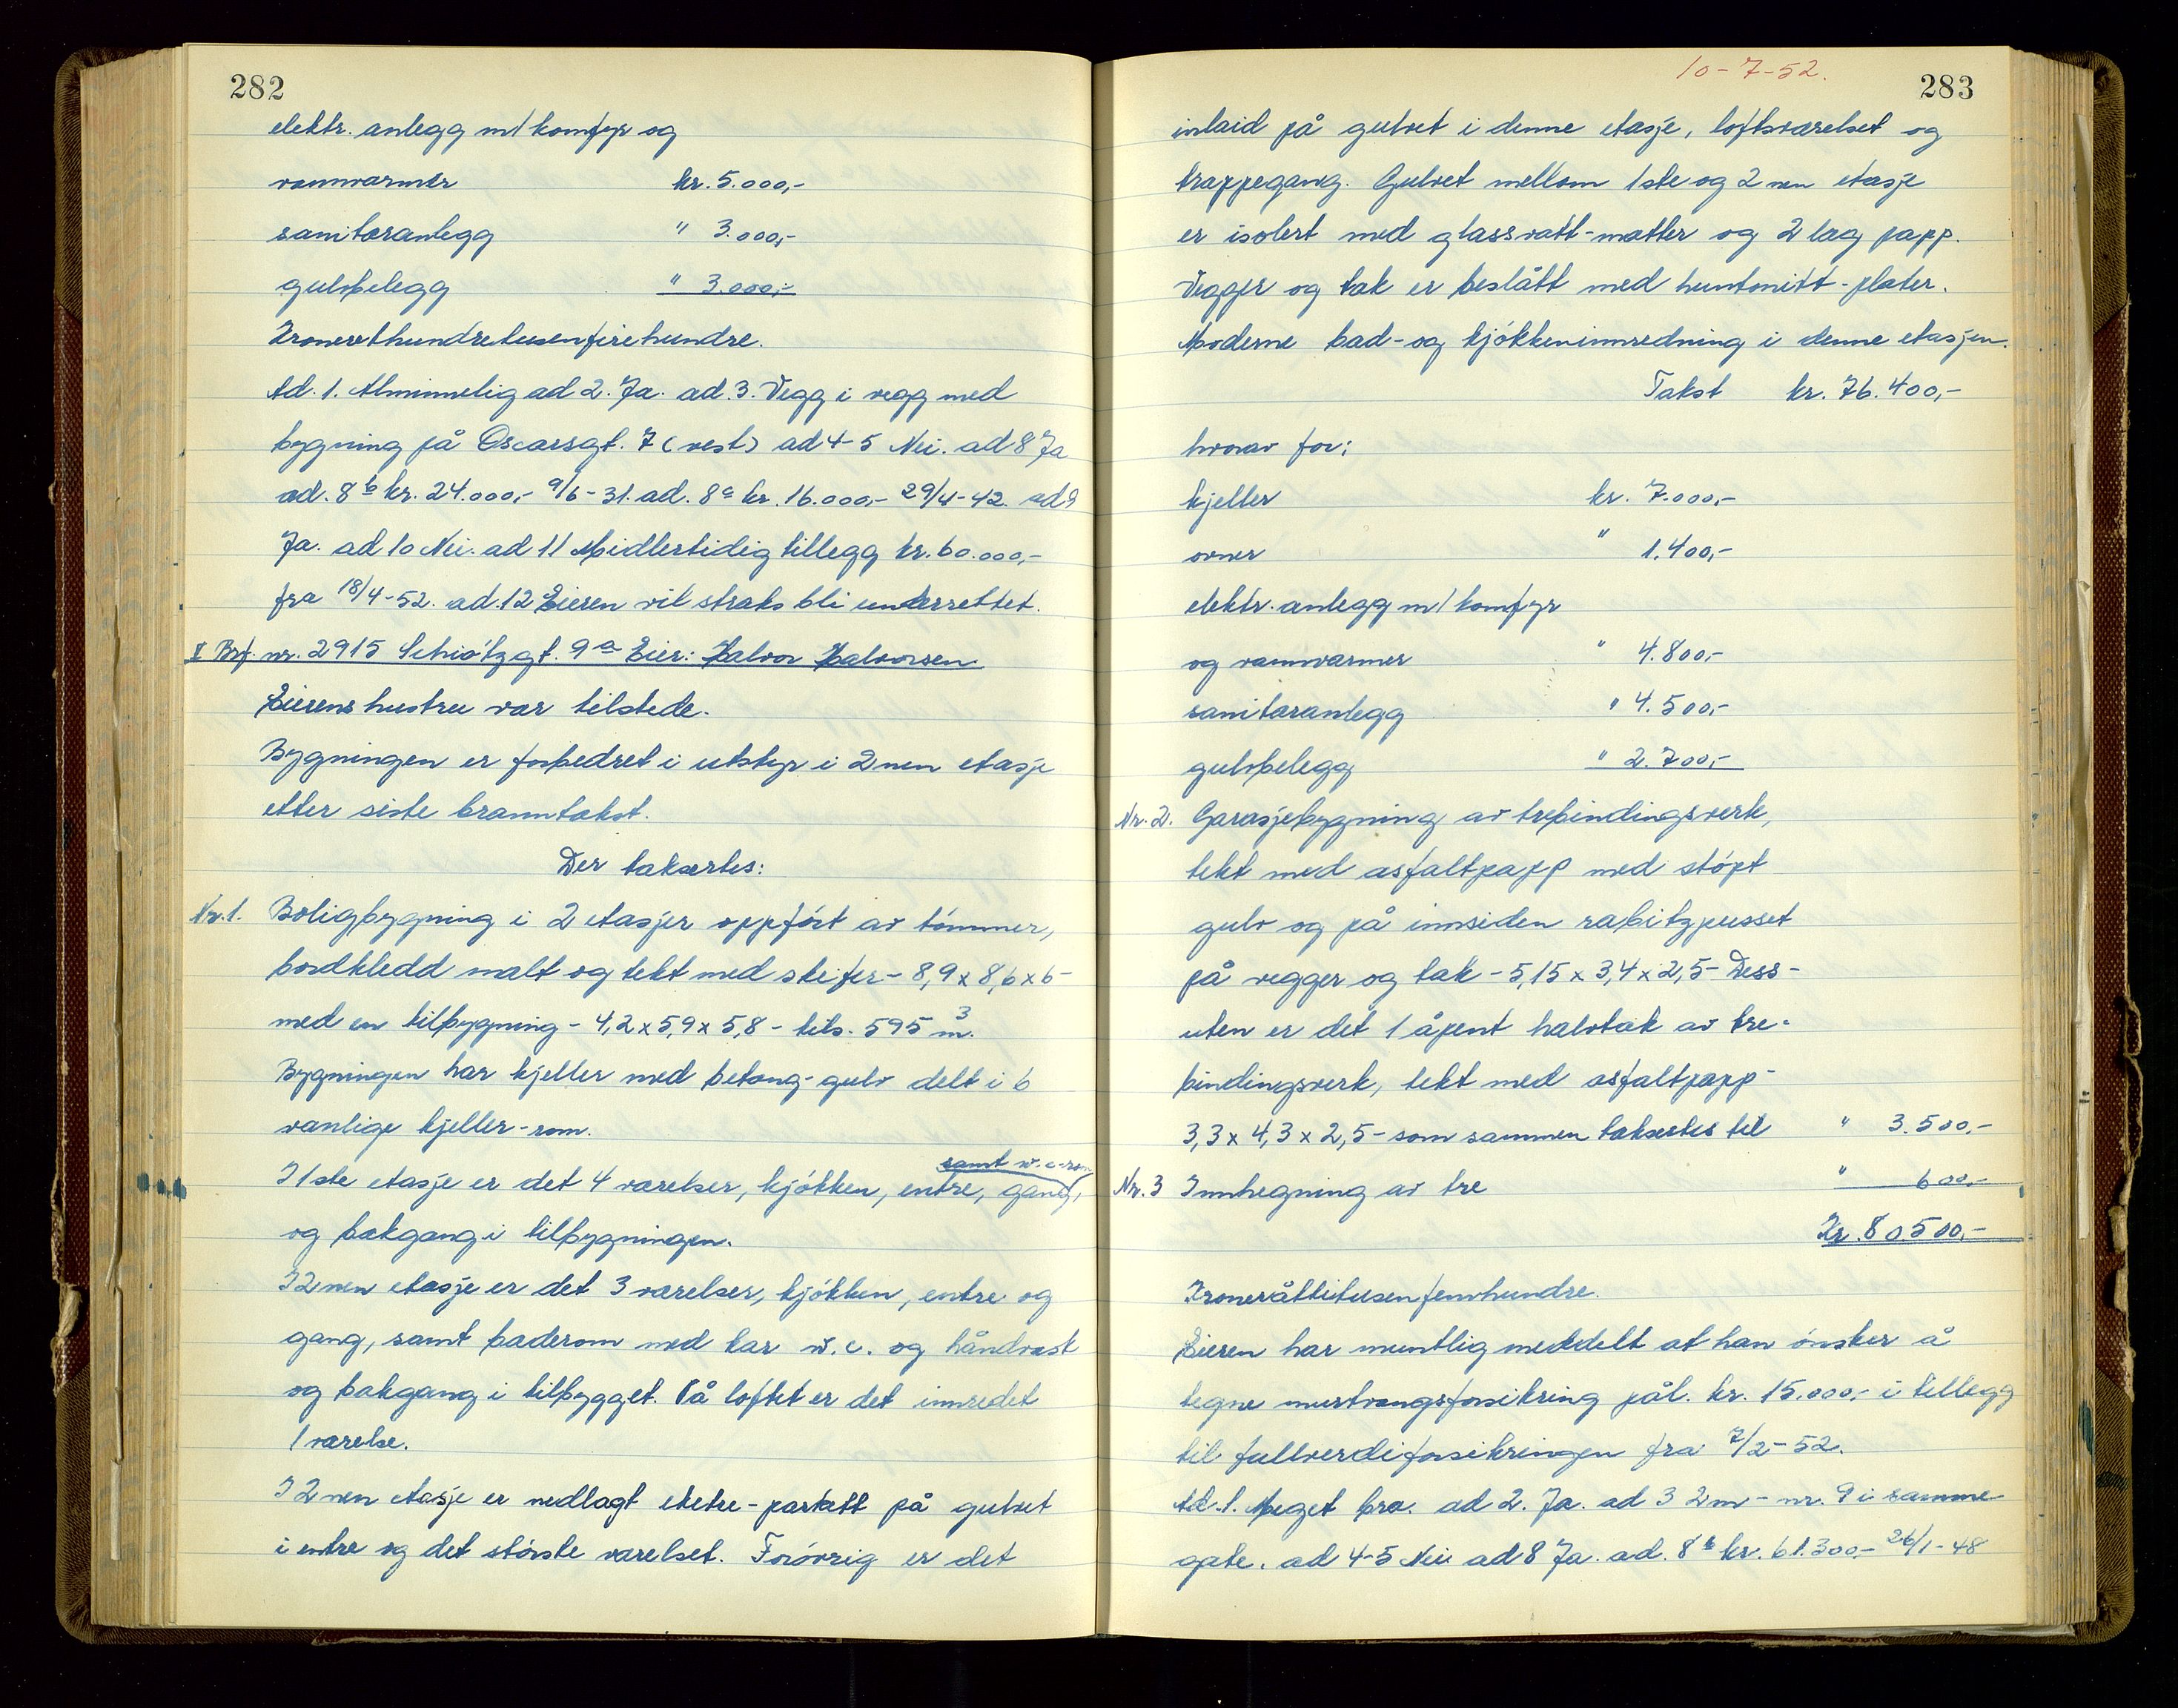 282
elektr. anlegg m/ komfyr og
vannvarmer kr. 5.000,-
sanitæranlegg " 3.000,-
gulvbelegg " 3.000,-
Kronerethundretusenfirehundre.
Ad. 1. Alminnelig ad 2. Ja. ad. 3. Vegg i vegg med
bygning på Oscarsgt. 7 (vest) ad 4-5 Nei. ad 8 Ja
ad. 8 b kr. 24.000,- 9/6-31. ad. 8 c kr. 16.000,- 29/4-42. ad 9
Ja. ad 10 Nei. ad 11 Midlertidig tillegg kr. 60.000,-
fra 18/4-52. ad. 12 Eieren vil straks bli underrettet.
V Brf. nr. 2915 Schiøtzgt. 9 a Eier: Halvor Halvorsen
Eierens hustru var tilstede.
Bygningen er forbedret i utstyr i 2nen etasje
etter siste branntakst.
Der taksertes:
Nr. 1. Boligbygning i 2 etasjer oppført av tømmer,
bordkledd malt og tekt med skifer - 8,9 x 8,6 x 6 -
med en tilbygning - 4,2 x 5,9 x 5,8 - tils. 595 m3.
Bygningen har kjeller med betong-gulv delt i 6
vanlige kjeller-rom.
samt w.c-rom
I 1ste etasje er det 4 værelser, kjøkken, entre, gang,
og bakgang i tilbygningen.
I 2nen etasje er det 3 værelser, kjøkken, entre og
gang, samt baderom med kar w.c. og håndvask
og bakgang i tilbygget. På loftet er det innredet
1 værelse.
I 2nen etasje er nedlagt eketre-parkett på gulvet
i entre og det største værelset. Forøvrig er det
10-7-52.
283
inlaid på gulvet i denne etasje, loftsværelset og
trappegang. Gulvet mellom 1ste og 2nen etasje
er isolert med glassvatt-matter og 2 lag papp.
Vegger og tak er beslått med huntonitt-plater.
Moderne bad- og kjøkkeninnredning i denne etasjen.
Takst kr. 76.400,-
hvorav for:
kjeller kr. 7.000,-
ovner " 1.400,-
elektr. anlegg m/ komfyr
og vannvarmer " 4.800,-
sanitæranlegg " 4.500,-
gulvbelegg " 2.700,-
Nr. 2. Garasjebygning av trebindingsverk,
tekt med asfaltpapp med støpt
gulv og på innsiden rabitzpusset
på vegger og tak - 5,15 x 3,4 x 2,5 - Dess-
uten er det 1 åpent halvtak av tre-
bindingsverk, tekt med asfaltpapp -
3,3 x 4,3 x 2,5 - som sammen taksertes til " 3.500,-
Nr. 3 Innhegning av tre " 600,-
Kr. 80.500,-
Kroneråttitusenfemhundre.
Eieren har muntlig meddelt at han ønsker å
tegne murtvangsforsikring pål. kr. 15.000,- i tillegg
til fullverdiforsikringen fra 7/2-52.
Ad. 1. Meget bra. ad 2. Ja. ad 3 2m - nr. 9 i samme
gate. ad 4-5 Nei ad 8 Ja. ad. 8 b kr. 61.300,- 26/1-48